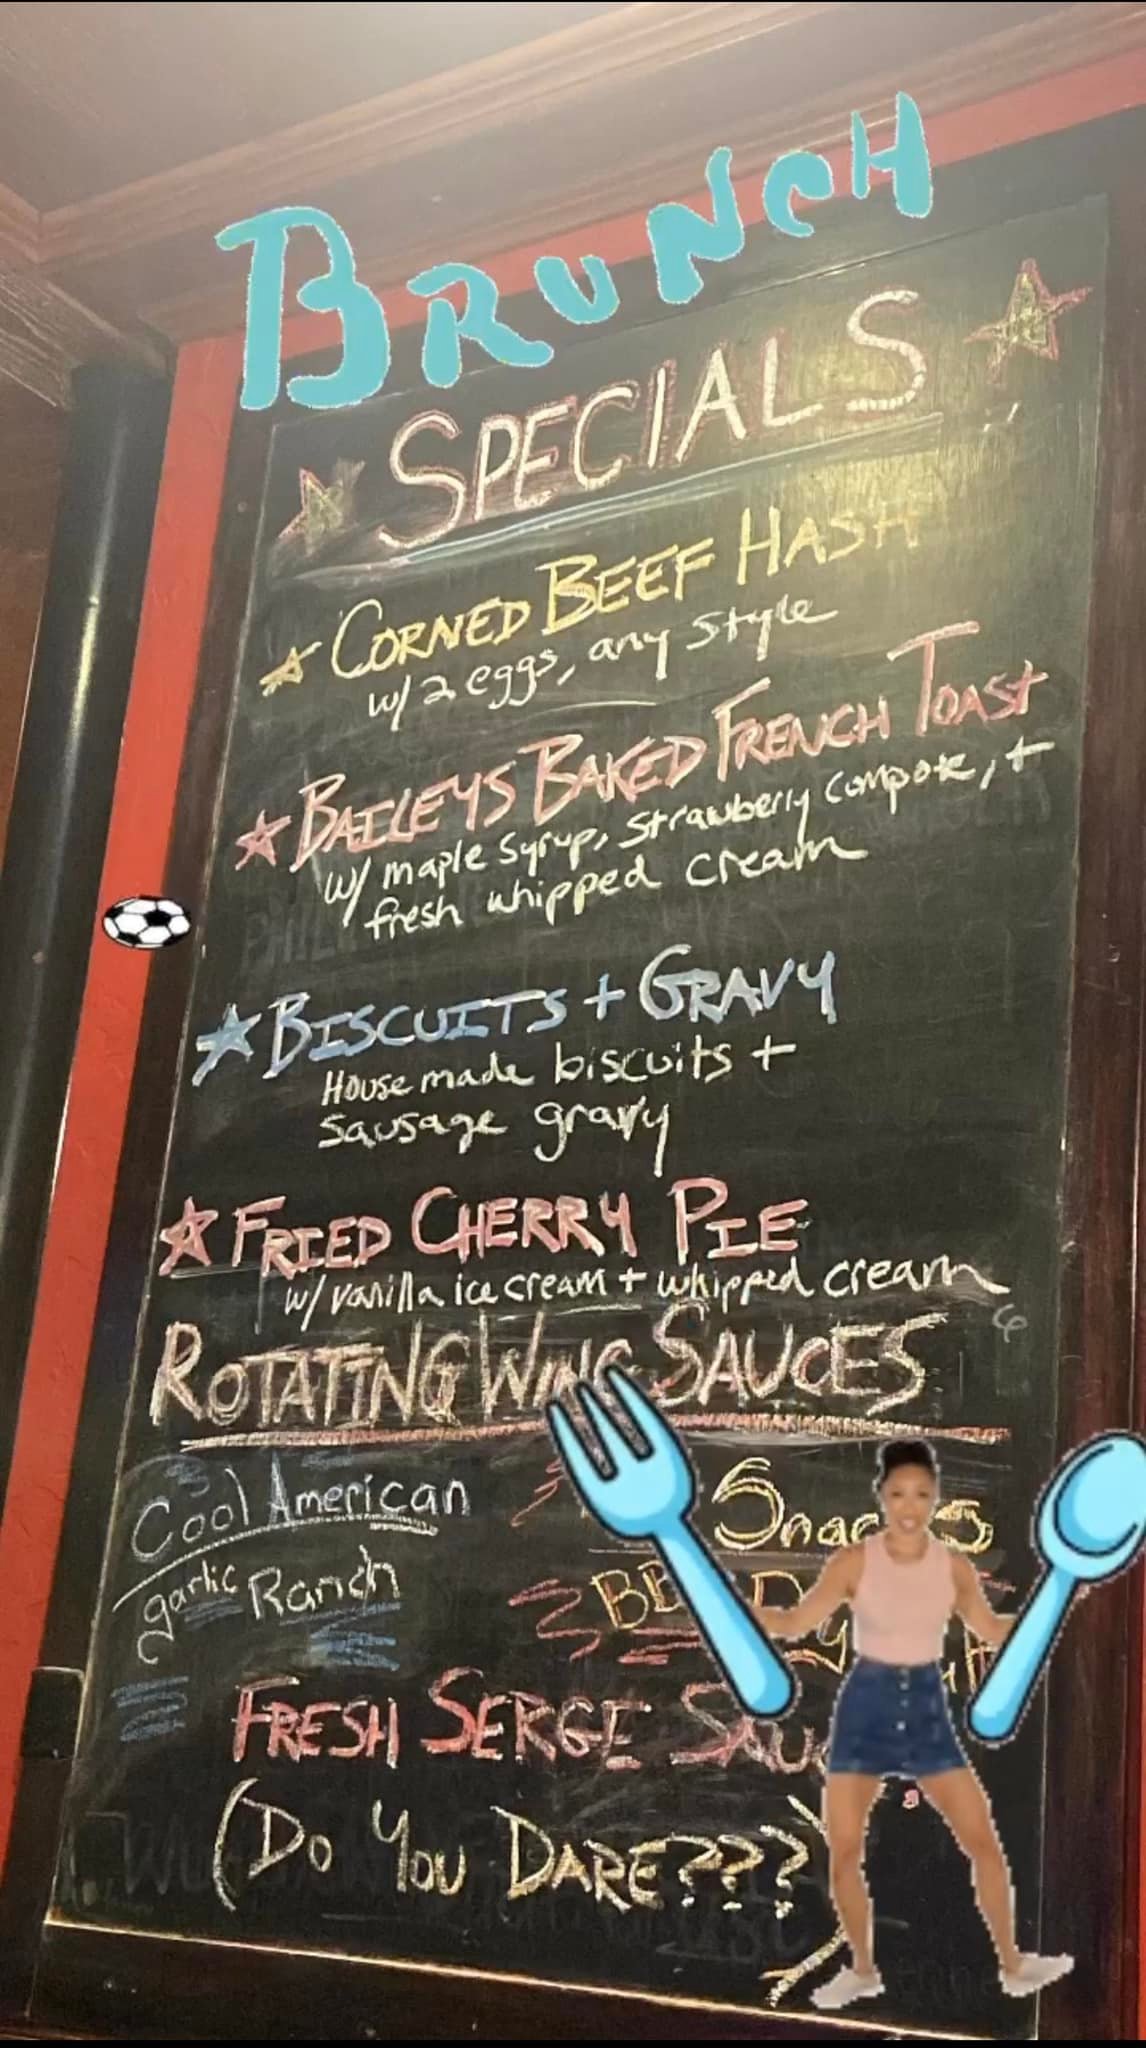 BRUNCH
SPECIALS
CORNED BEEF HASH
w/ 2 eggs, any style
BAILEYS BAKED FRENCH TOAST
w/ maple syrup, strawberry compote, +
fresh whipped cream
BISCUITS + GRAVY
House made biscuits +
sausage gravy
FRIED CHERRY PIE
w/ vanilla ice cream + whipped cream
ROTATING WING SAUCES
Cool American
garlic Ranch
FRESH SERGE
(DO YOU DARE???)